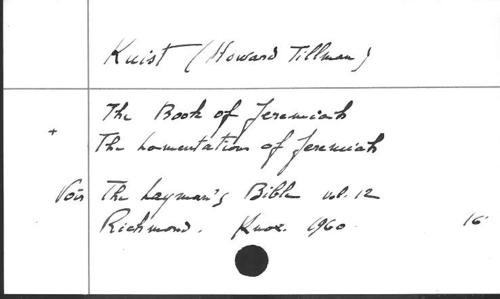 Kuist (Howard Tillman)
The Book of Jeremiah
+ The Lamentations of Jeremiah
Voir The Layman's Bible vol. 12
Richmond. Knox. 1960 16